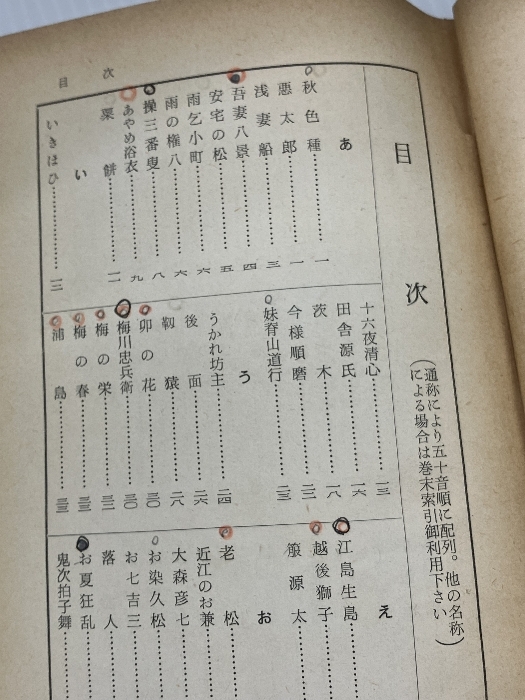 目次
目次
(通称により五十音順に配列。他の名称
による場合は巻末索引御利用下さい)
あ
秋色種…………一
悪太郎…………一
浅妻船…………三
吾妻八景…………四
安宅の松…………五
雨乞小町…………六
雨の権八…………六
操三番叟…………八
あやめ浴衣…………九
粟餅…………一一
い
いきほひ…………一三
十六夜清心…………一三
田舎源氏…………一六
茨木…………一八
今様順磨…………二二
妹脊山道行…………二三
う
うかれ坊主…………二四
後面…………二六
靱猿…………二八
卯の花…………三〇
梅川忠兵衛…………三〇
梅の栄…………三二
梅の春…………三三
浦島…………三三
え
江島生島…………
越後獅子…………
箙源太…………
お
老松…………
近江のお兼…………
大森彦七…………
お染久松…………
お七吉三…………
落人…………
お夏狂乱…………
鬼次拍子舞…………